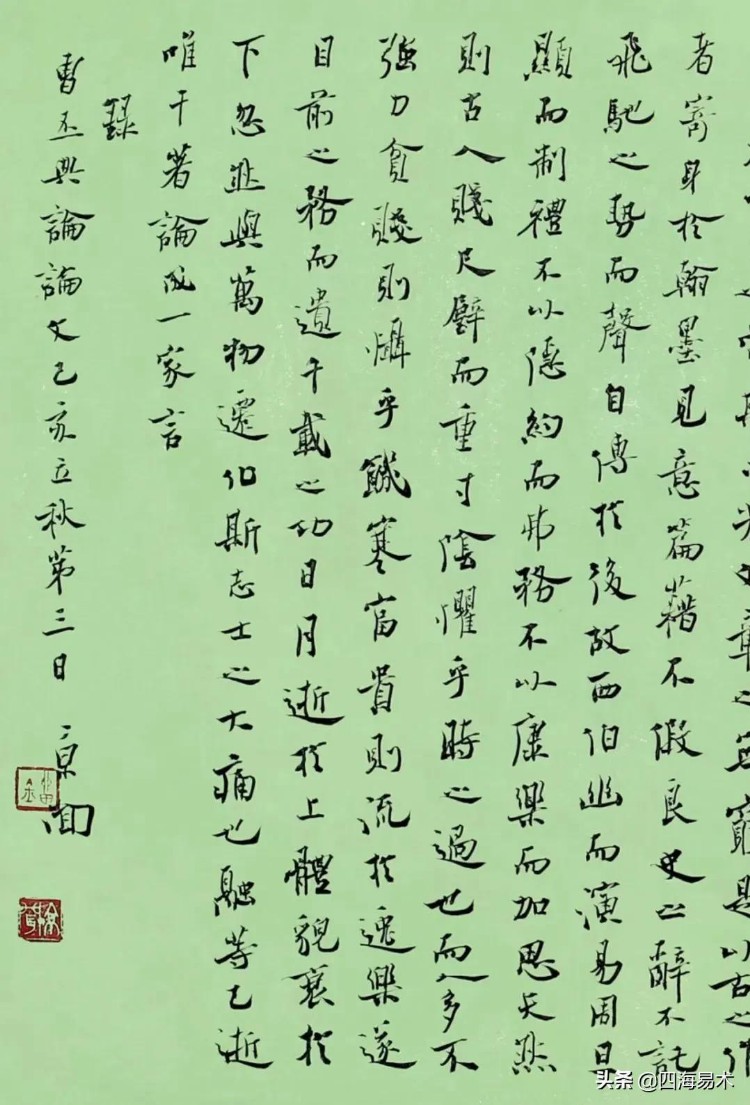 章之無窮是以古之作
者寄身於翰墨見意篇藉不假良史之辭不託
飛馳之勢而聲自傳於後故西伯幽而演易周旦
顯而制禮不以隱約而弗務不以康樂而加思夫然
則古人賤尺璧而重寸陰懼乎時之過也而人多不
強力貧賤則懾乎饑寒富貴則流於逸樂遂
目前之務而遺千載之功日月逝於上體貌衰於
下忽然與萬物遷化斯志士之大痛也融等已逝
唯干著論成一家言
錄
曹丕典論論文己亥立秋第三日
头条 @四海易木